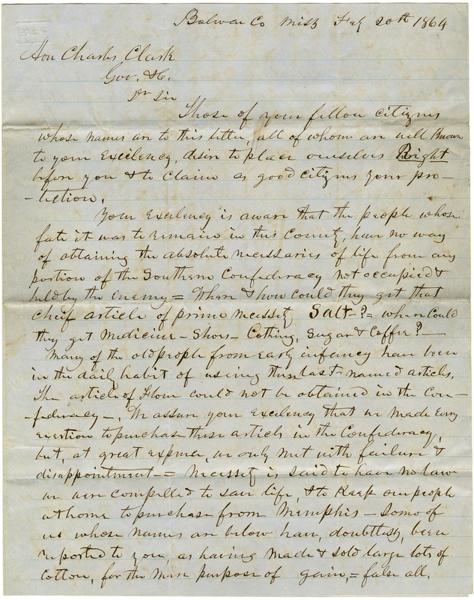 Bolivar Co Miss Feby 20th 1864
Hon Charles Clark
Gov. &c.
Dr Sir
Those of your fellow citizens
whose names are to this letter, all of whom are well known
to your Excilency, desire to place ourselves Right
before you & to claim as good citizens your pro-
-tection.
Your Excilency is aware that the people whose
fate it was to remain in this County, have no way
of obtaining the absolute necessaries of life from any
portion of the Southern Confederacy not occupied &
held by the enemy = Where & how could they get that
chief article of prime necessity Salt? = where could
they get Medicine - Shoes - Clothing, Sugar & Coffee? -
Many of the old people from early infancy have been
in the daily habit of useing these last named articles.
The article of Flour could not be obtained in the Con-
-federacy -. We assure your Excilency that we made every
exertion to purchase these articles in the Confederacy,
but, at great expense, we only met with failure &
disappointment - = Necessity is said to have no law
we were compelled to save life, & to keep our people
at home to purchase from Memphis - Some of
us whose names are below have, doubtless, been
reported to you, as having made & sold large lots of
cotton, for the mere purpose of gain, = false all.